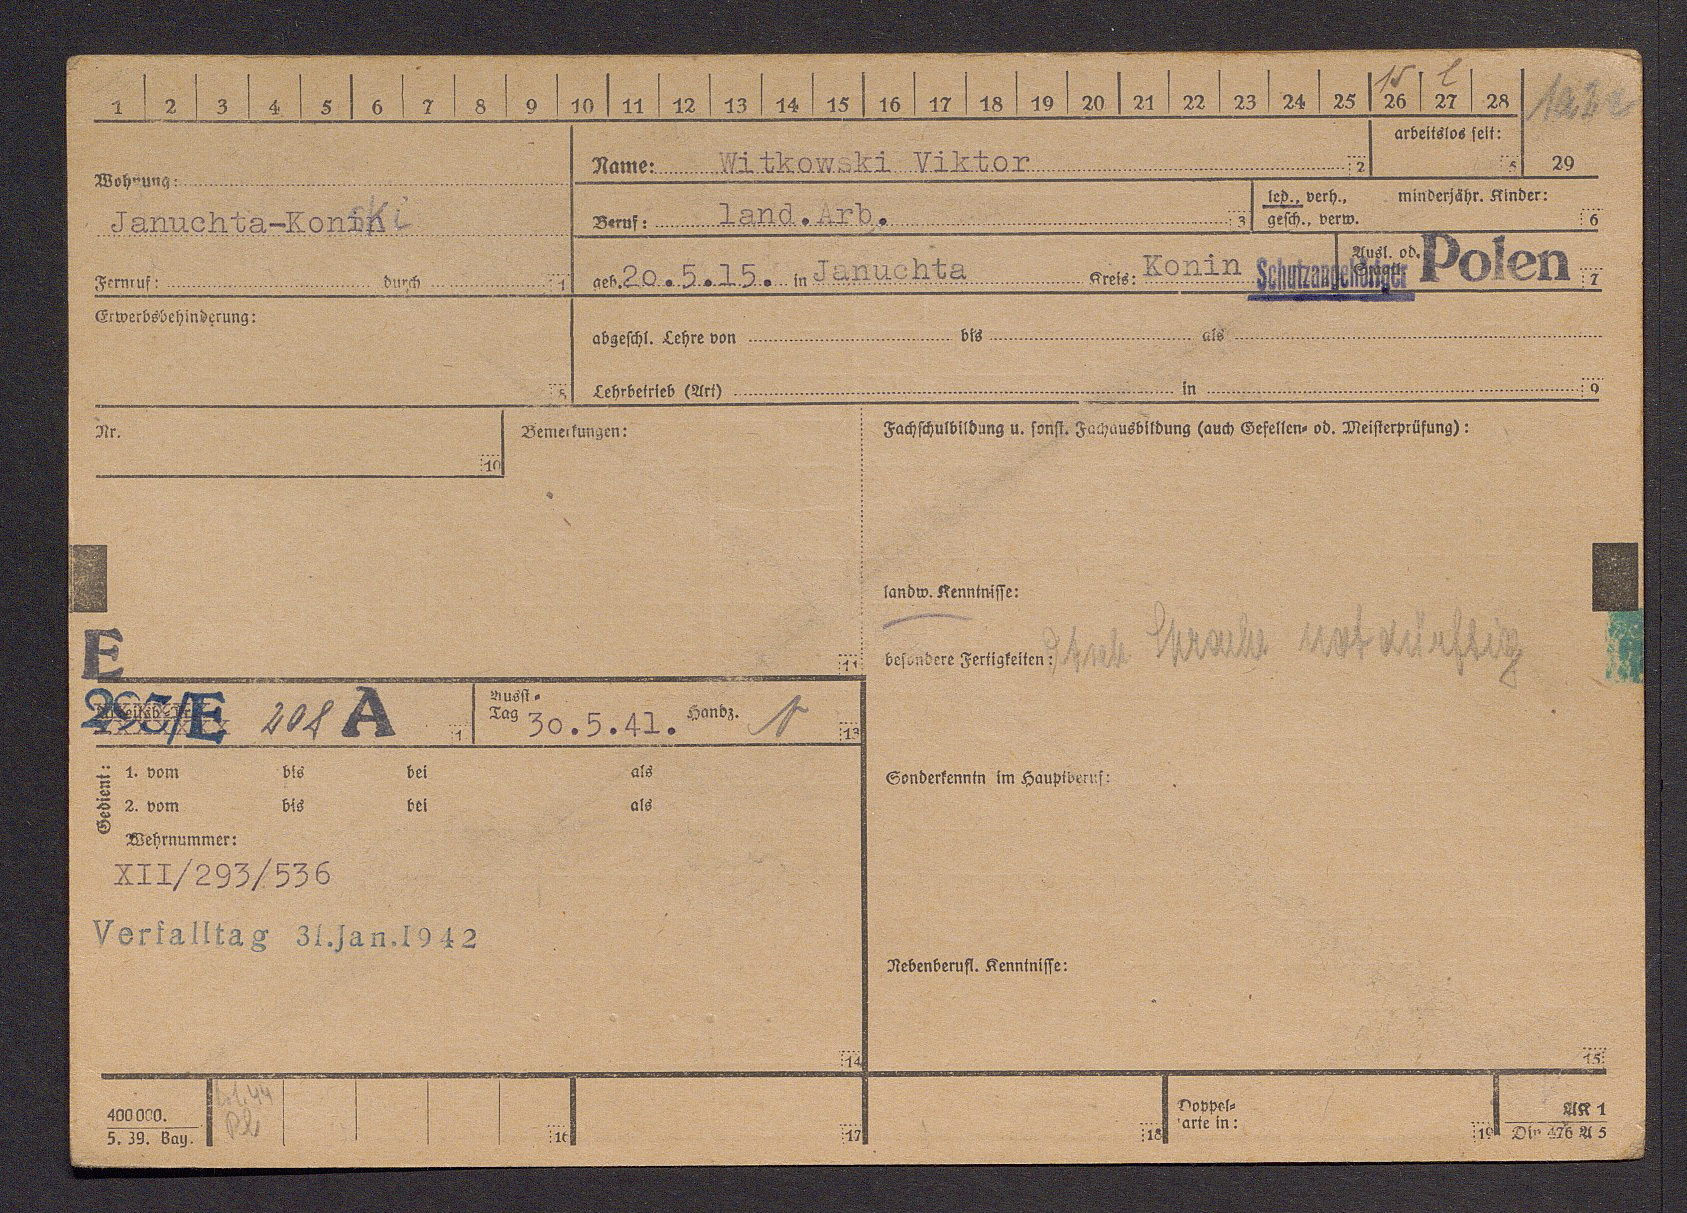 1 2 3 4 5 6 7 8 9 10 11 12 13 14 15 16 17 18 19 20 21 22 23 24 25 26 27 28
15
arbeitslos seit:
5 29
Name: Witkowski Viktor 2
Wohnung:
Januchta-Konin
Beruf: land.Arb. 3
led., verh.,
gesch., verw.
minderjähr. Kinder:
6
Fernruf: durch 1
geb. 20.5.15. in Januchta Kreis: Konin
Schutzangehöriger
Ausl. od.
Staatl.
Polen 7
Erwerbsbehinderung:
8
abgeschl. Lehre von bis als
Lehrbetrieb (Art) in 9
Nr.
10
Bemerkungen:
11
Fachschulbildung u. sonst. Fachausbildung (auch Gesellen- od. Meisterprüfung):
landw. Kenntnisse:
besondere Fertigkeiten: Sprache notdürftig
E
295/E 208 A 1
Ausst.
Tag 30.5.41. Handz. 13
Gedient:
1. vom bis bei als
2. vom bis bei als
Wehrnummer:
XII/293/536
Verfalltag 31.Jan.1942
14
Sonderkenntn im Hauptberuf:
Nebenberufl. Kenntnisse:
15
400 000.
5. 39. Bay.
16
17
18
Doppel-
arte in:
19
AK 1
Din 476 A 5